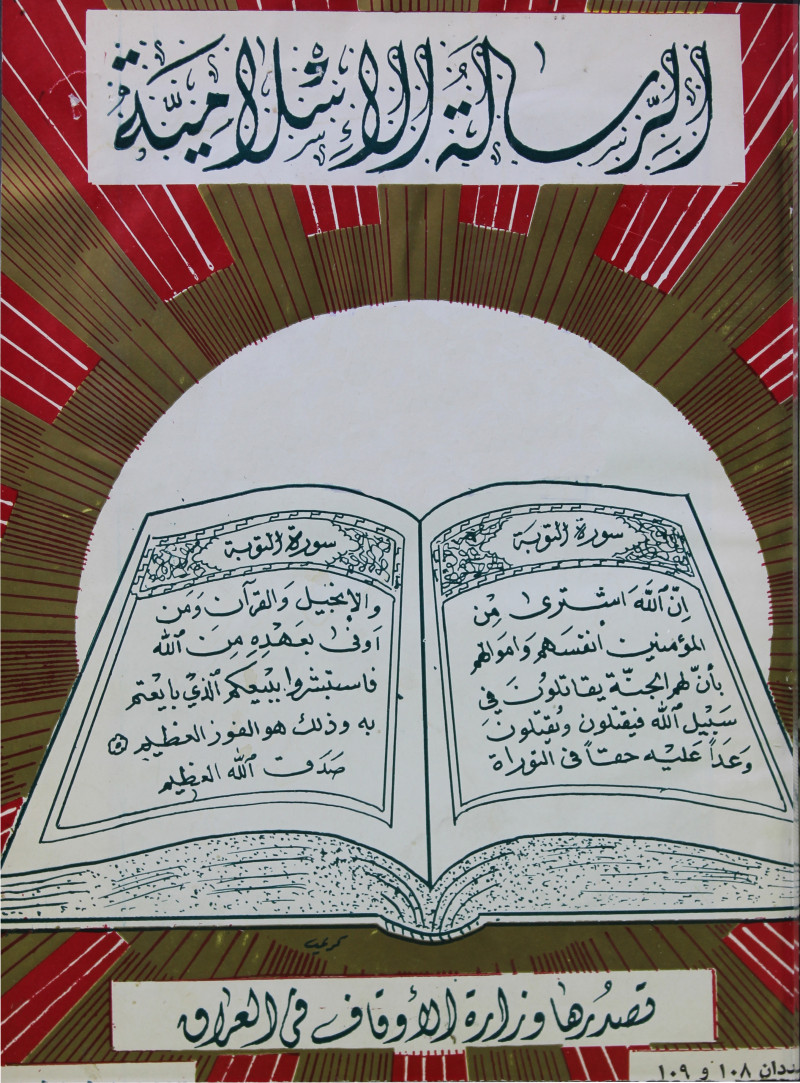 الرسالة الإسلامية
سورة التوبة
إنّ الله اشترى مِن
المؤمنين أنفسَهم وَاموالهم
بأنّ لهم الجنّة يقاتلونَ في
سَبيْل الله فيَقتلون ويُقتلونَ
وَعَداً عَليْه حقّاً في التوراة
سورة التوبة
والإنجيل وَالقرآن وَمَن
اوفىٰ بعَهْدِهِ مِنَ الله
فاستبشروا ببَيْعِكم الّذيْ بايَعْتم
به وذلك هو الفوز العظيم
صَدَق الله العظيم
تصدُرها وزارة الأوقاف في العراق
١٠٨ و ١٠٩